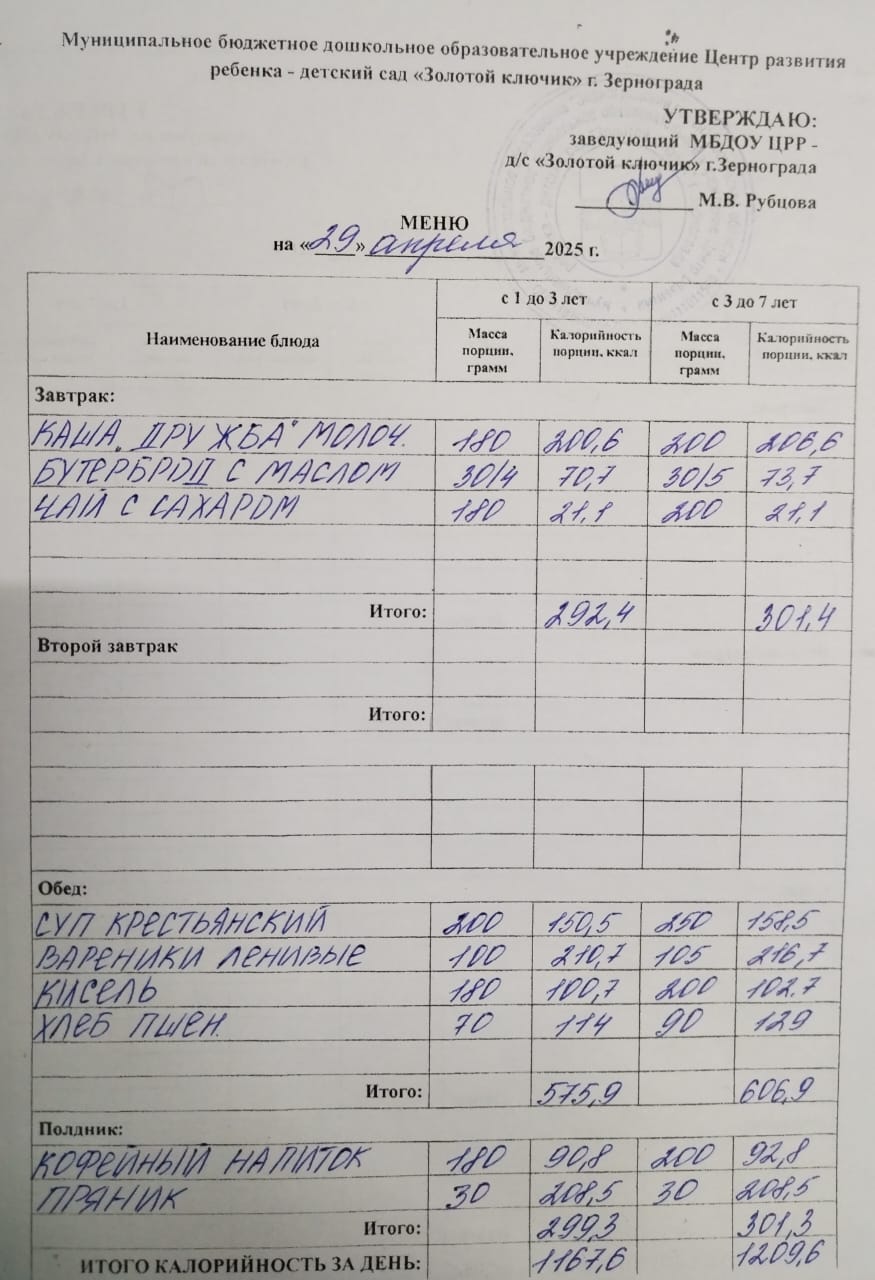 Муниципальное бюджетное дошкольное образовательное учреждение Центр развития
ребенка - детский сад «Золотой ключик» г. Зернограда
УТВЕРЖДАЮ:
заведующий МБДОУ ЦРР -
д/с «Золотой ключик» г.Зернограда
М.В. Рубцова
МЕНЮ
на «29» апреля 2025 г.
Наименование блюда
с 1 до 3 лет с 3 до 7 лет
Масса порции, грамм Калорийность порции, ккал Масса порции, грамм Калорийность порции, ккал
Завтрак:
КАША „ДРУЖБА" МОЛОЧ. 180 200,6 200 206,6
БУТЕРБРОД С МАСЛОМ 30/4 70,7 30/5 73,7
ЧАЙ С САХАРОМ 180 21,1 200 21,1
Итого: 292,4 301,4
Второй завтрак
Итого:
Обед:
СУП КРЕСТЬЯНСКИЙ 200 150,5 250 158,5
ВАРЕНИКИ ЛЕНИВЫЕ 100 210,7 105 216,7
КИСЕЛЬ 180 100,7 200 102.7
ХЛЕБ ПШЕН. 70 114 90 129
Итого: 575,9 606,9
Полдник:
КОФЕЙНЫЙ НАПИТОК 180 90,8 200 92,8
ПРЯНИК 30 208,5 30 208,5
Итого: 299,3 301,3
ИТОГО КАЛОРИЙНОСТЬ ЗА ДЕНЬ: 1167,6 1209,6